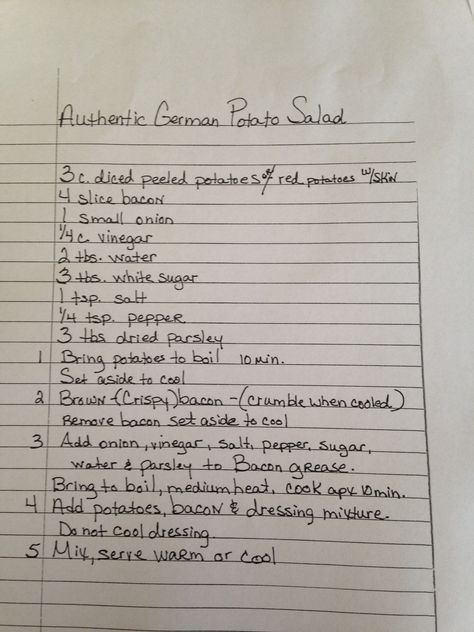 Authentic German Potato Salad
3 c. diced peeled potatoes or red potatoes w/skin
4 slice bacon
1 small onion
1/4 c. vinegar
2 tbs. water
3 tbs. white sugar
1 tsp. salt
1/4 tsp. pepper
3 tbs dried parsley
1 Bring potatoes to boil 10 min.
Set aside to cool
2 Brown-(Crispy) bacon-(crumble when cooled)
Remove bacon set aside to cool
3 Add onion, vinegar, salt, pepper, sugar,
water & parsley to Bacon grease.
Bring to boil, medium heat, cook apx 10 min.
4 Add potatoes, bacon & dressing mixture.
Do not cool dressing.
5 Mix, serve warm or cool